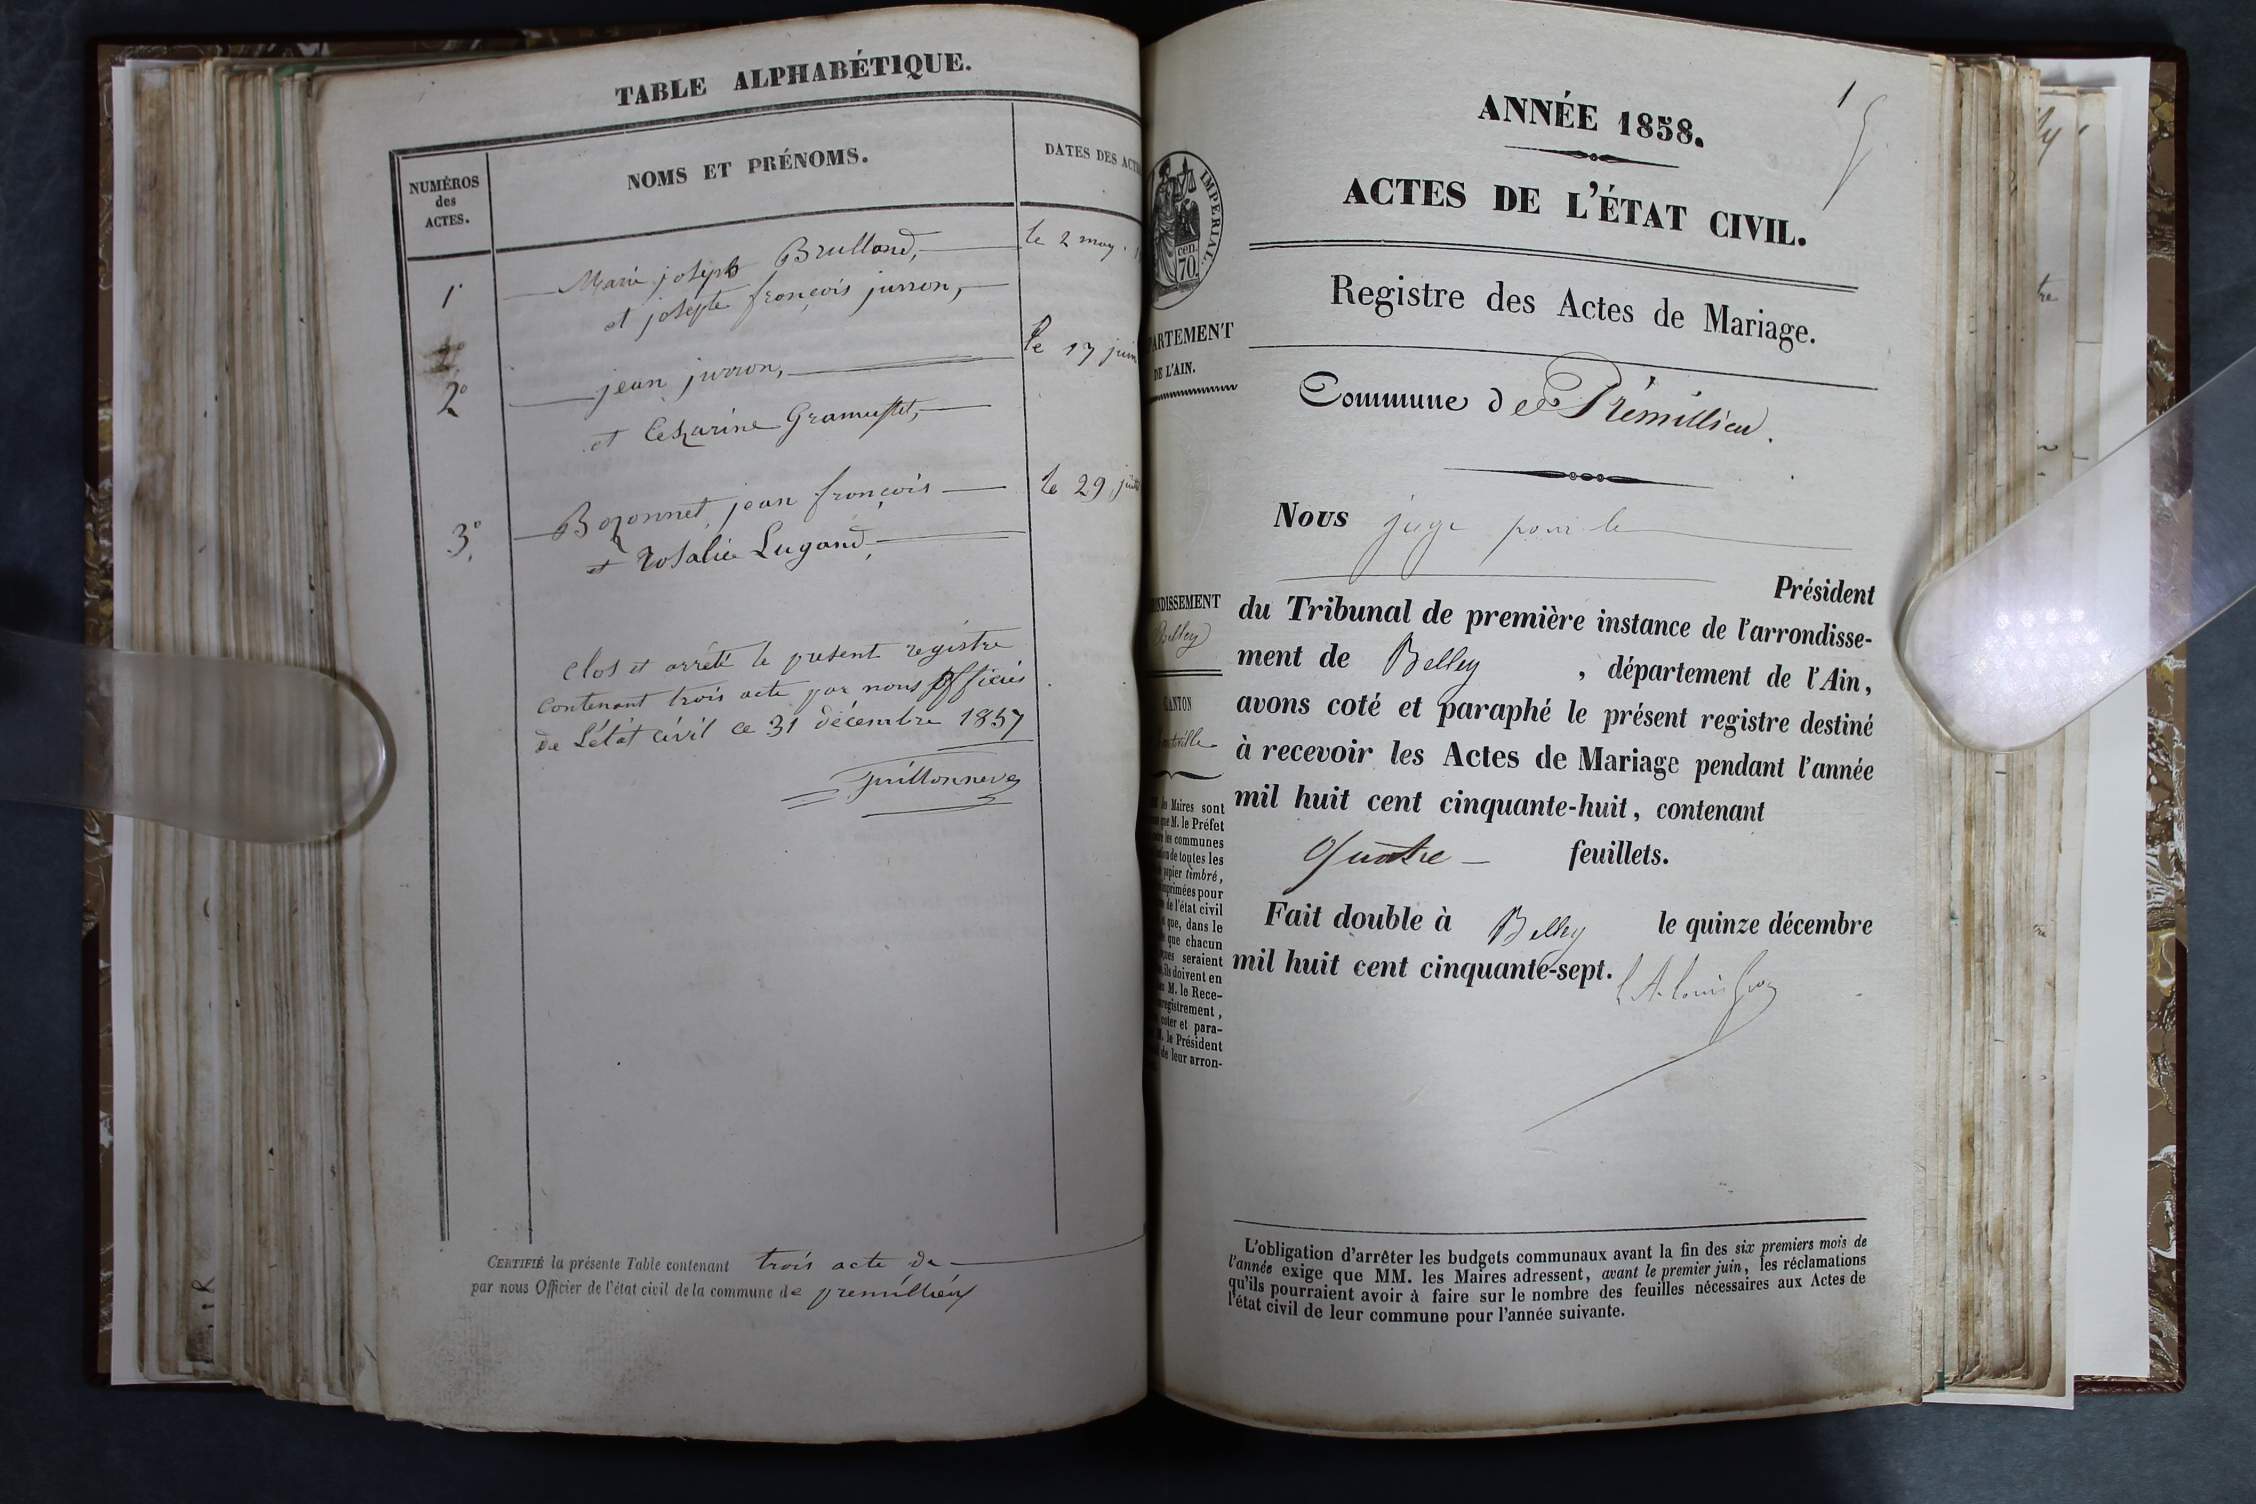 TABLE ALPHABÉTIQUE.
NUMÉROS
des
ACTES.
NOMS ET PRÉNOMS.
DATES DES ACT
1°
Marie joseph Brulland,
le 2 may
et josepte françois jurron,
2°
jean jurron,
le 17 juin
et Cezarine Gramusset,
3°
Bozonnet jean françois
le 29 juill
et Rosalie Lugand,
clos et arrété le present registre
contenant trois acte par nous officiés
de L'état civil ce 31 décembre 1857
CERTIFIÉ la présente Table contenant trois acte de
par nous Officier de l'état civil de la commune de premillieux
1
ANNÉE 1858.
ACTES DE L'ÉTAT CIVIL.
IMPERIAL.
cen.
70.
Registre des Actes de Mariage.
PARTEMENT
DE L'AIN.
Commune de Prémillieu.
Nous juge pour le
Président
NDISSEMENT
Belley
du Tribunal de première instance de l'arrondisse-
ment de Belley, département de l'Ain,
CANTON
avons coté et paraphé le présent registre destiné
à recevoir les Actes de Mariage pendant l'année
mil huit cent cinquante-huit, contenant
Quatre feuillets.
Fait double à Belley le quinze décembre
mil huit cent cinquante-sept.
Maires sont
que M. le Préfet
les communes
de toutes les
papier timbré,
imprimées pour
de l'état civil
que, dans le
que chacun
seraient
ils doivent en
M. le Rece-
registrement,
coter et para-
le Président
de leur arron-
L'obligation d'arrêter les budgets communaux avant la fin des six premiers mois de
l'année exige que MM. les Maires adressent, avant le premier juin, les réclamations
qu'ils pourraient avoir à faire sur le nombre des feuilles nécessaires aux Actes de
l'état civil de leur commune pour l'année suivante.